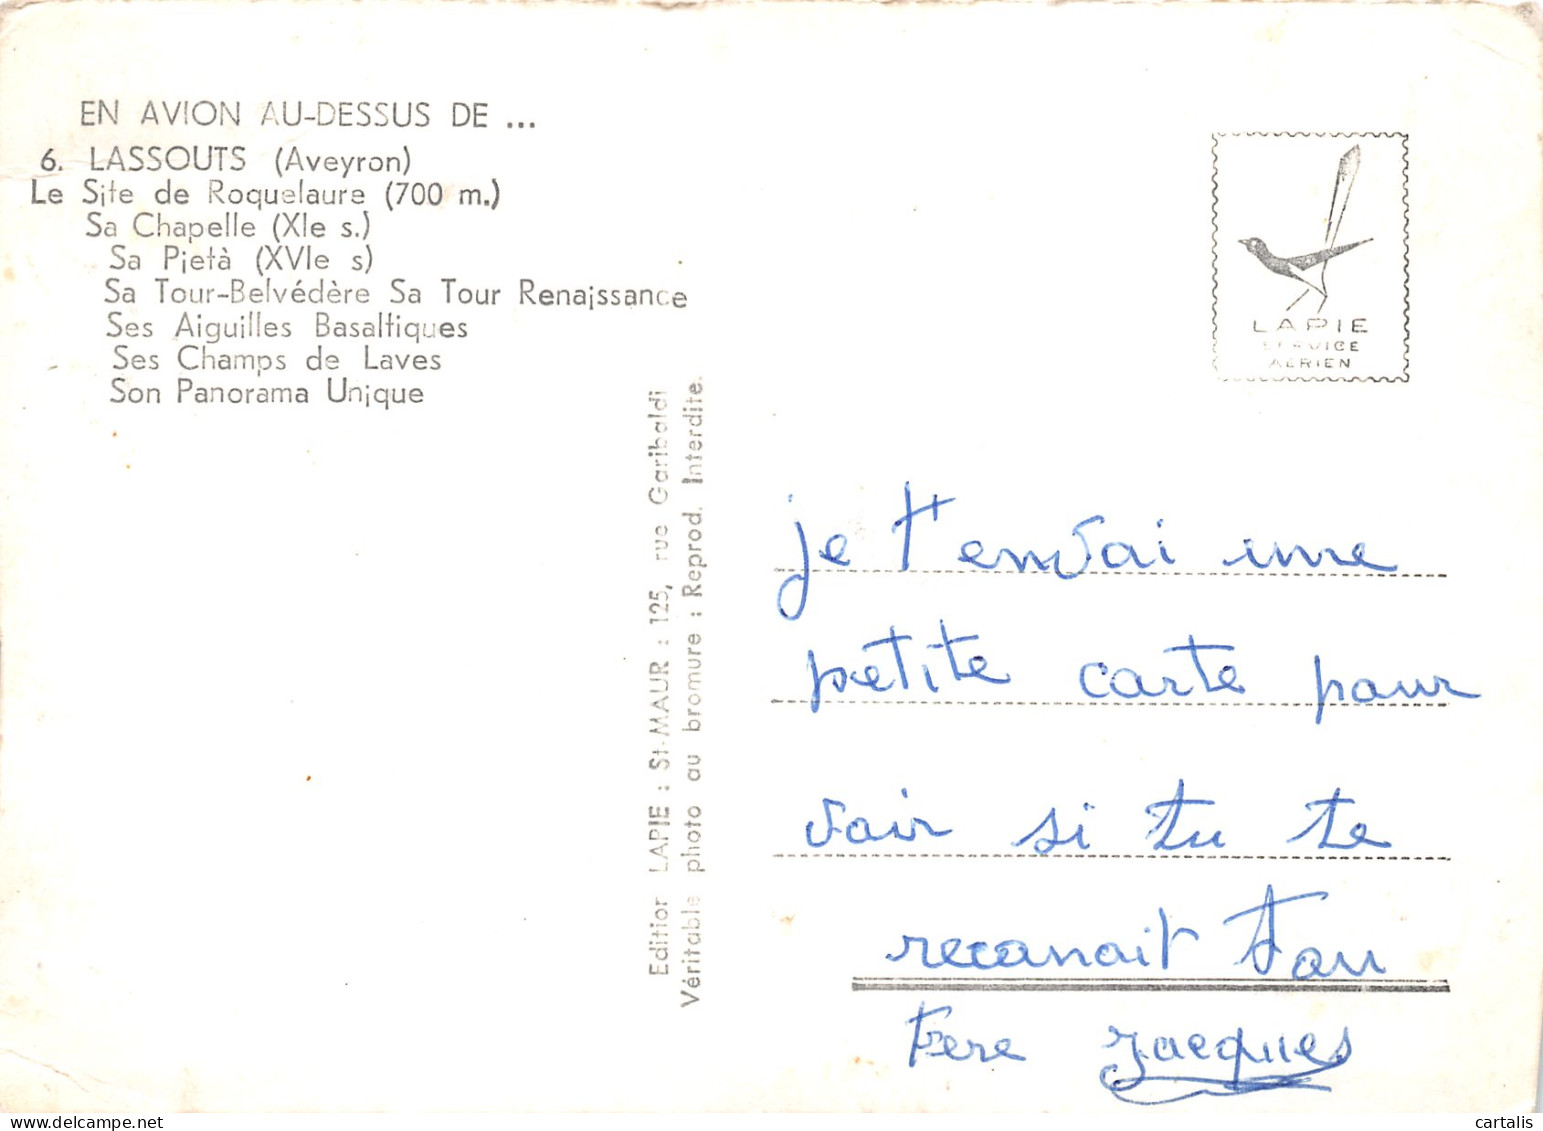 EN AVION AU-DESSUS DE ...
6. LASSOUTS (Aveyron)
Le Site de Roquelaure (700 m.)
Sa Chapelle (XIe s.)
Sa Pietà (XVIe s)
Sa Tour-Belvédère Sa Tour Renaissance
Ses Aiguilles Basaltiques
Ses Champs de Laves
Son Panorama Unique
LAPIE
SERVICE
AERIEN
Edition LAPIE : St-MAUR : 125, rue Garibaldi
Véritable photo au bromure : Reprod. Interdite.
je t'envoai une
petite carte pour
voir si tu te
reconait ton
Frere Jacques
cartalis